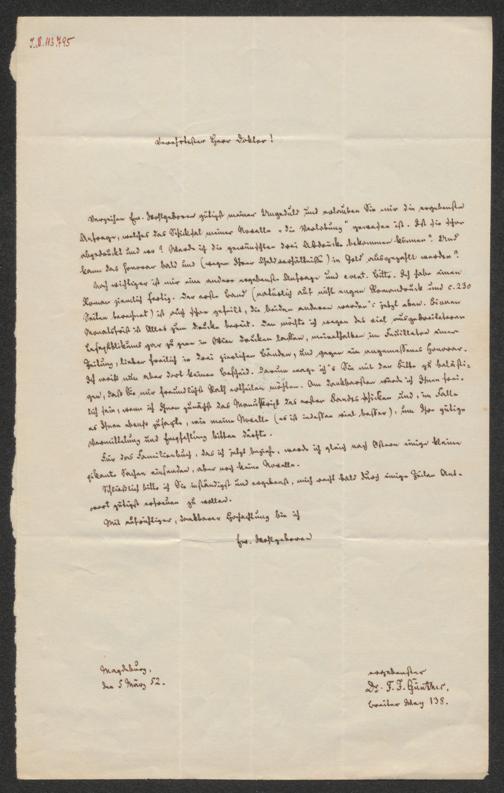 I.N. 113.795
Verehrtester Herr Doktor!
Verzeihen Ew. Wohlgeboren gütigst meiner Ungeduld und erlauben Sie mir die ergebenste
Anfrage, welches das Schicksal meiner Novelle „die Verlobung" geworden ist. Ist sie schon
abgedruckt und wo? Werde ich die gewünschten drei Abdrücke bekommen können? Und
kann das Honorar bald und (wegen Ihrer Geldverhältnisse) in Gold ausgezahlt werden?
Noch wichtiger ist mir eine andere ergebenste Anfrage und event. Bitte. Ich habe einen
Roman ziemlich fertig. Der erste Band (natürlich auf nicht engen Romandruck und c. 230
Seiten berechnet) ist auch schon gefeilt, die beiden anderen werden's jetzt eben. Binnen
Monatsfrist ist Alles zum Drucke bereit. Den möchte ich wegen des viel ausgebreiteteren
Lesepublikums gar zu gern in Wien drucken lassen, meinethalben im Feuilleton einer
Zeitung, lieber freilich in drei zierlichen Bänden, und gegen ein angemessenes Honorar.
Ich weiß nun aber dort keinen Bescheid. Darum wage ich's Sie mit der Bitte zu belästi-
gen, daß Sie mir freundlichst Rath ertheilen möchten. Am dankbarsten würde ich Ihnen frei-
lich sein, wenn ich Ihnen zunächst das Manuskript des ersten Bandes schicken und, im Falle
es Ihnen ebenso zusagte, wie meine Novelle (es ist indessen viel besser), um Ihre gütige
Vermittelung und Empfehlung bitten dürfte.
Für das Familienbuch, das ich jetzt besitze, werde ich gleich nach Ostern einige kleine
pikante Sachen einsenden, aber noch keine Novelle.
Schließlich bitte ich Sie inständigst und ergebenst, mich recht bald durch einige Zeilen Ant-
wort gütigst erfreuen zu wollen.
Mit aufrichtiger, dankbarer Hochachtung bin ich
Ew. Wohlgeboren
Magdeburg,
den 5 März 52.
ergebenster
Dr. F. J. Günther,
breiter Weg 138.